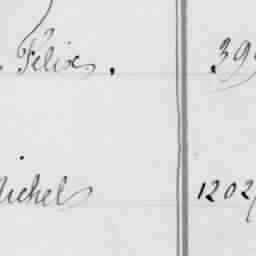 Félix. 39
Michel 1202